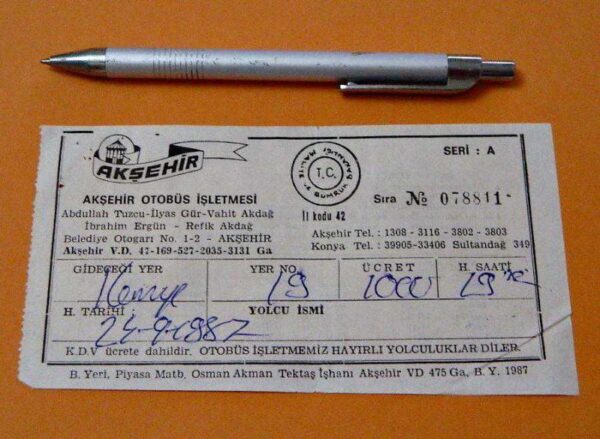 AKŞEHİR
SERİ : A
T.C.
MALİYE VE GÜMRÜK BAKANLIĞI
İl kodu 42
Sıra № 078811
AKŞEHİR OTOBÜS İŞLETMESİ
Abdullah Tuzcu-İlyas Gür-Vahit Akdağ
İbrahim Ergün - Refik Akdağ
Belediye Otogarı No. 1-2 - AKŞEHİR
Akşehir V.D. 47-169-527-2035-3131 Ga
Akşehir Tel. : 1308 - 3116 - 3802 - 3803
Konya Tel. : 39905-33406 Sultandağ 349
GİDECEĞİ YER YER NO. ÜCRET H. SAATİ
Konya 19 1000 19
H. TARİHİ YOLCU İSMİ
24-9-1987
K.D.V ücrete dahildir. OTOBÜS İŞLETMEMİZ HAYIRLI YOLCULUKLAR DİLER.
B. Yeri, Piyasa Matb. Osman Akman Tektaş İşhanı Akşehir VD 475 Ga, B. Y. 1987